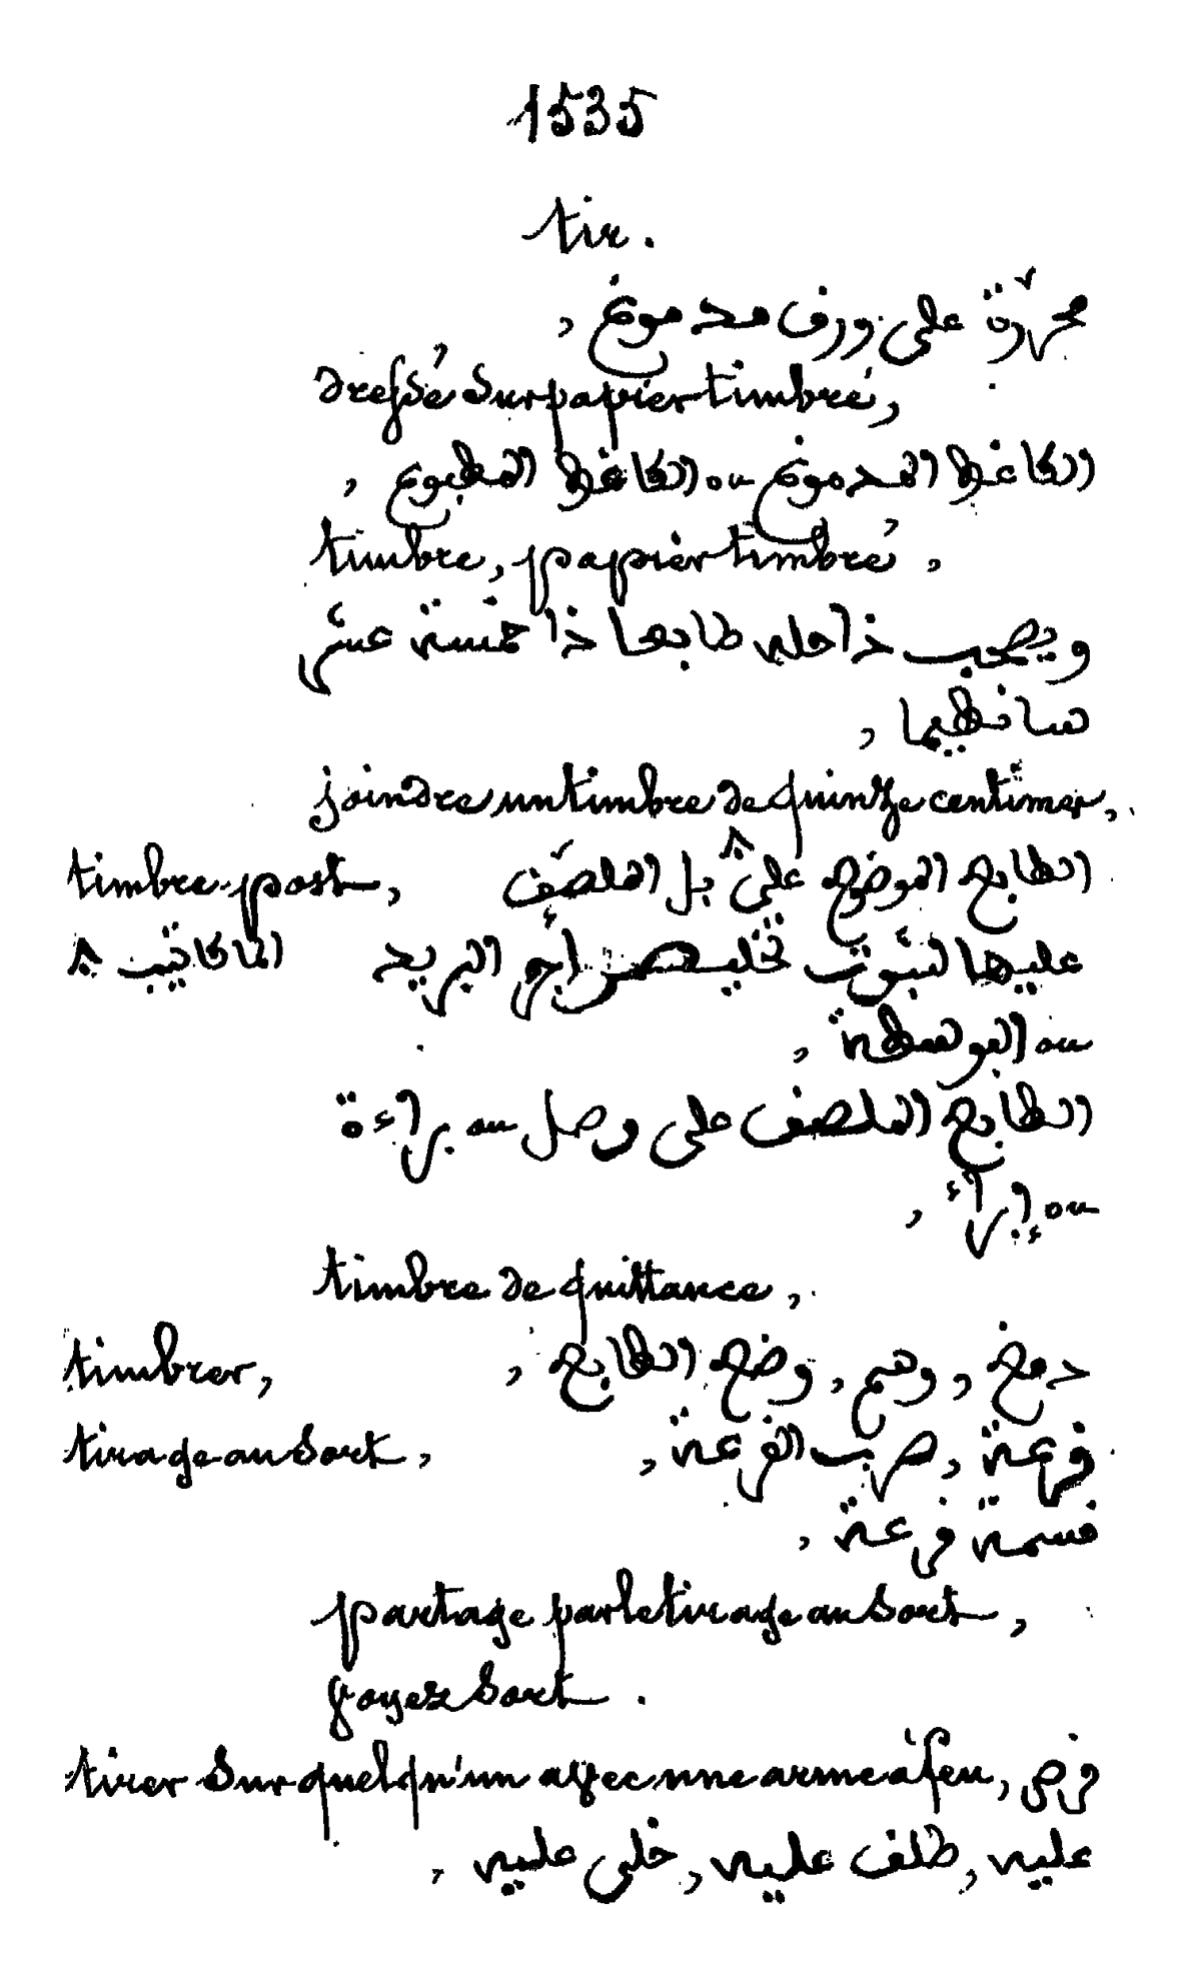 1535
tir.
محرّرة على ورق مدموغ ,
dressé sur papier timbré,
الكاغظ المدموغ ou الكاغظ المطبوع ,
timbre, papier timbré,
ويصحب داخله طابعا ذا خمسة عشر
سانطيما ,
joindre un timbre de quinze centimes,
timbre-post, الطابع الموضع على بل الملصّق
عليها لثبوت تخليص أجر البريد المكاتيب
ou البوسطة ,
الطابع الملصق على وصل ou براءة
ou إبراء ,
timbre de quittance,
timbrer, دمغ , وسم , وضع الطابع ,
tirage au sort, قرعة , ضرب القرعة ,
قسمة قرعة ,
partage par le tirage au sort,
Voyez Sort.
tirer sur quelqu'un avec une arme à feu, قرص
عليه , طلق عليه , خلى عليه ,